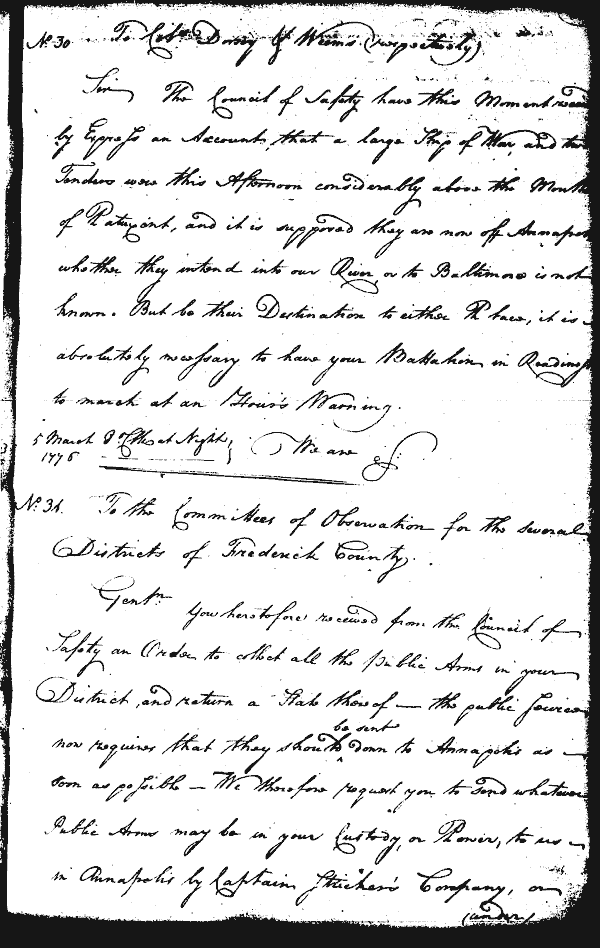 No. 30 To Colos. Dorsey & Weems (respectively)
Sir The Council of Safety have this Moment
by Express an Account, that a large Ship of War, and two
Tenders were this Afternoon considerably above the Mouth
of Patuxent, and it is supposed they are now off
whether they intend into our River or to Baltimore is not
known. But be their Destination to either Place, it is
absolutely necessary to have your Battalion in
to march at an Hour's Warning.
5 March 8 oClock at Night, We are &c.
1776
No. 31. To the Committees of Observation for the several
Districts of Frederick County.
Gentn.
You heretofore received from the Council of
Safety an Order to collect all the public Arms in your
District, and return a State thereof — the public Service
be sent
now requires that they should ‸ down to Annapolis as —
soon as possible — We therefore request you to send whatever
Public Arms may be in your Custody, or Power, to us —
in Annapolis by Captain Stricker's Company, or
(under)